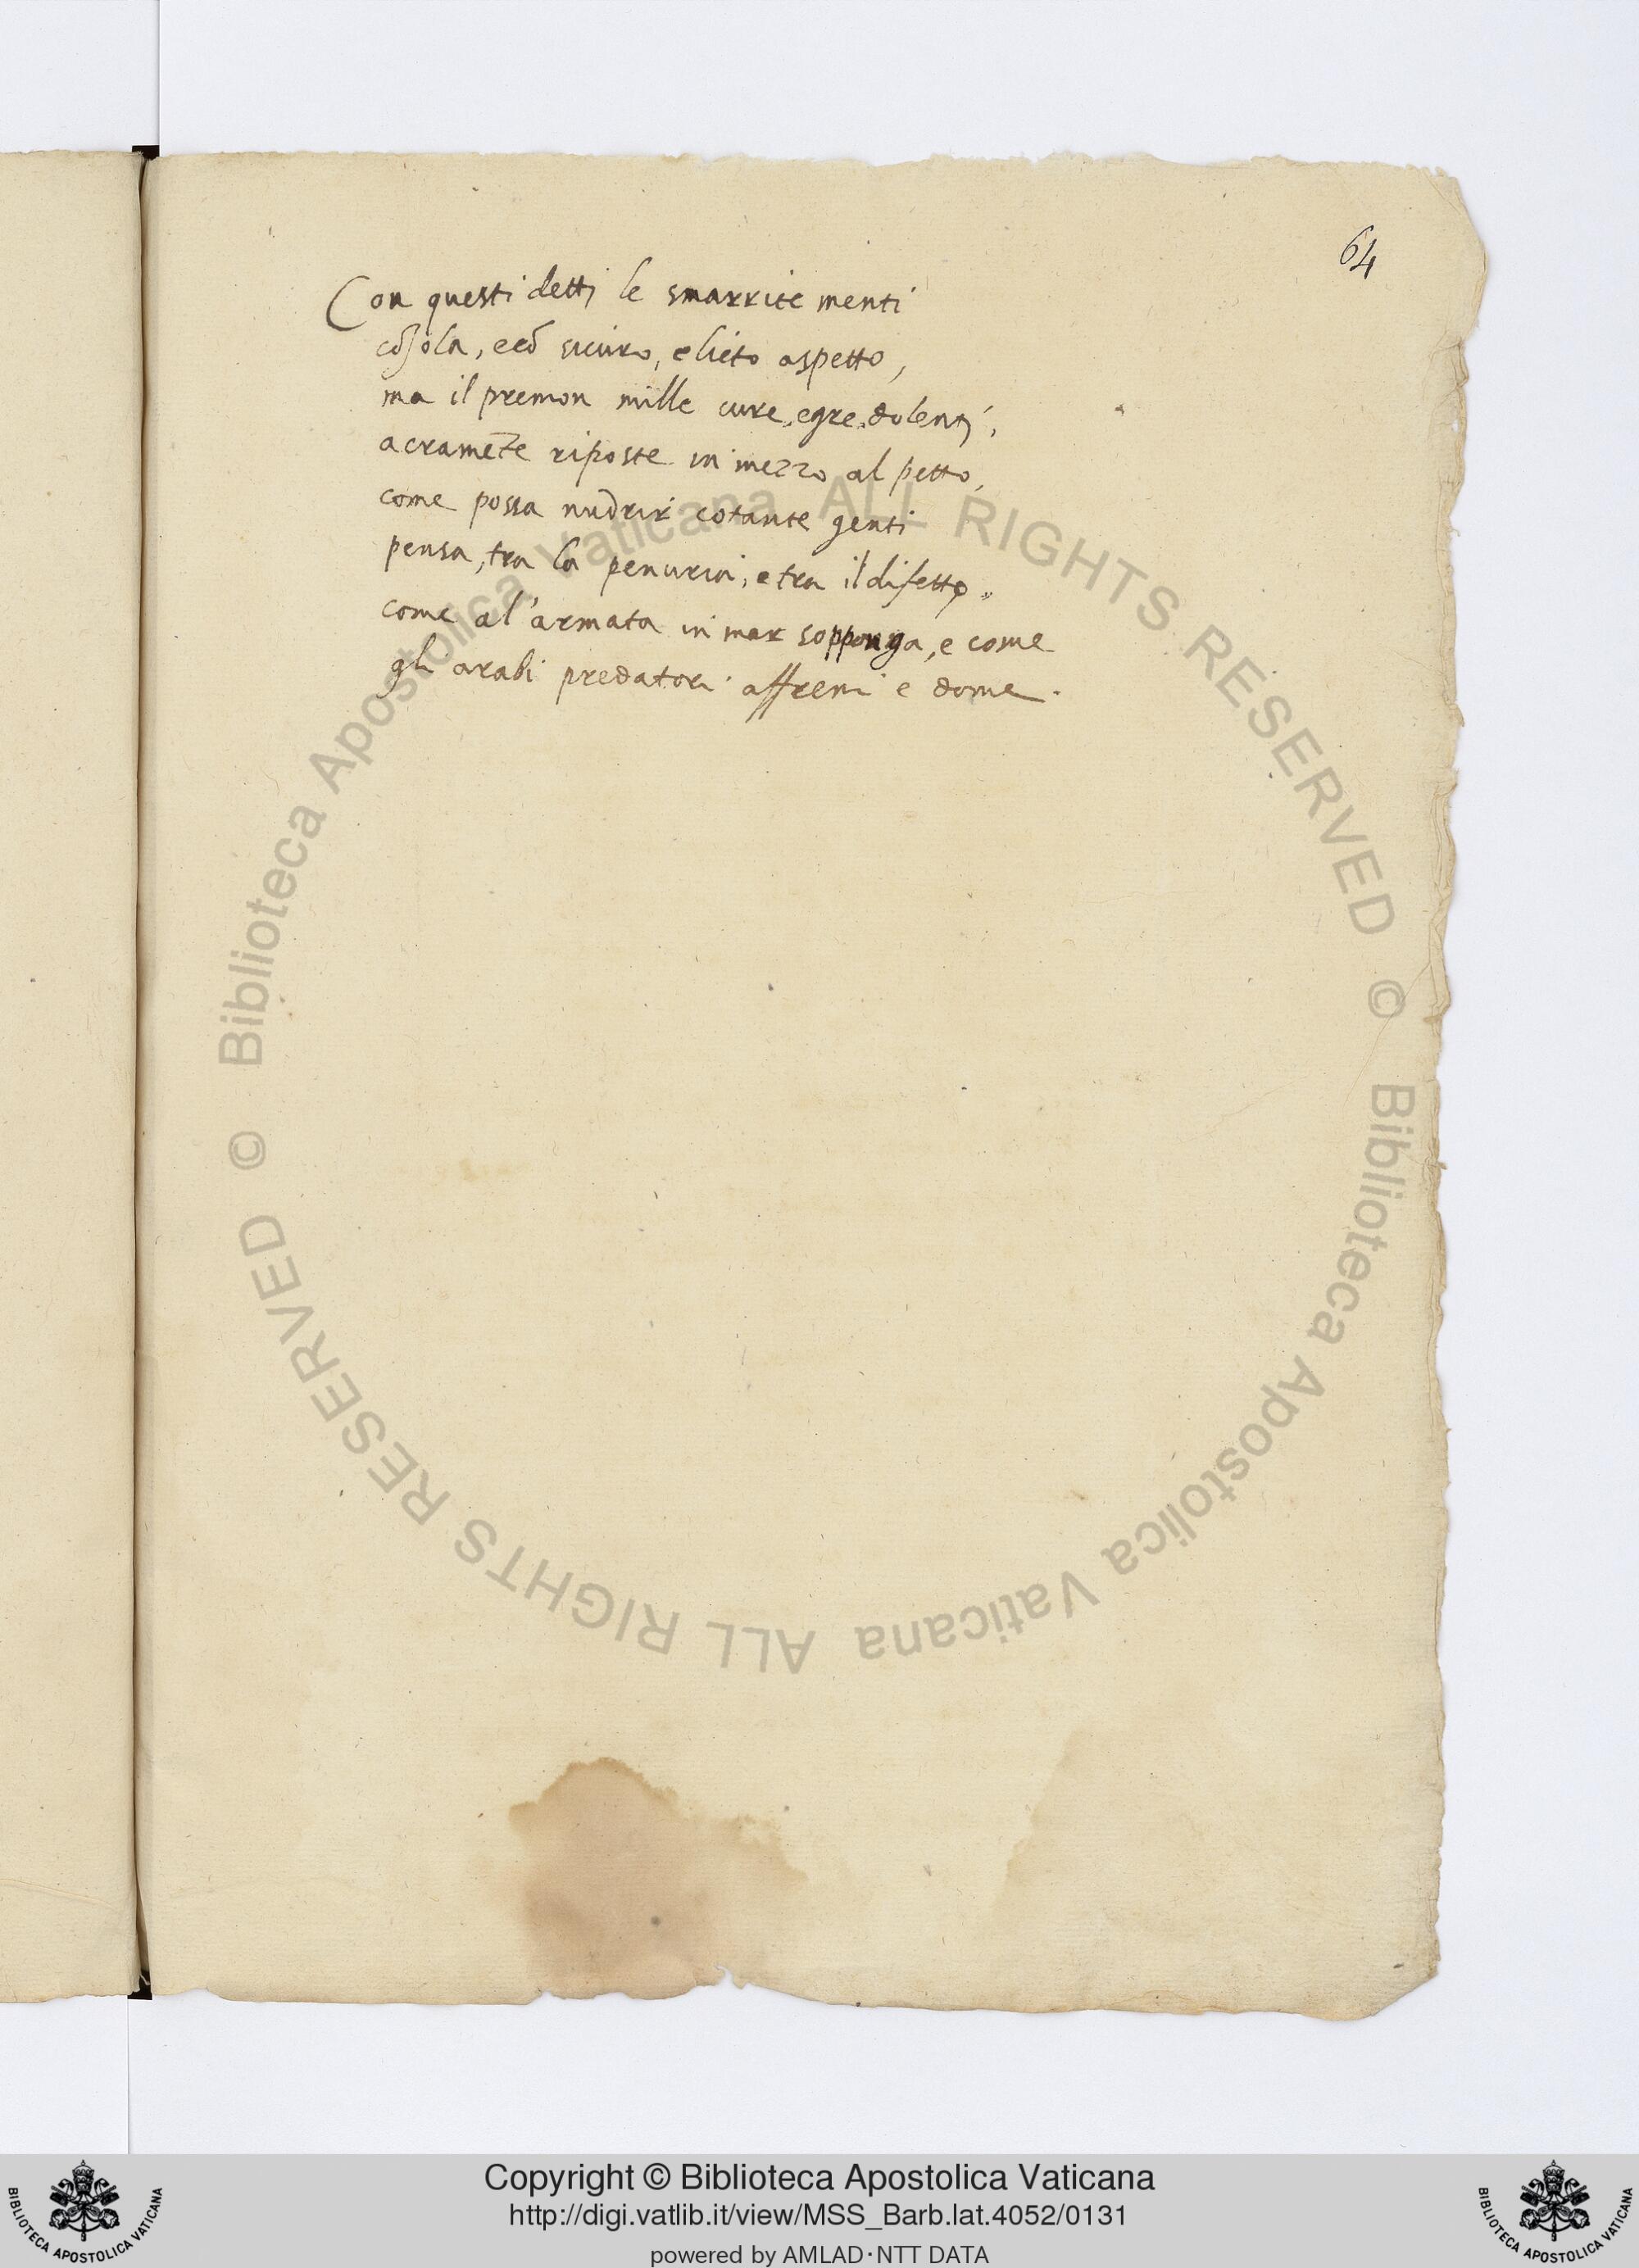 64
Con questi detti le smarrite menti
cõsola, e cõ sicuro, e lieto aspetto,
ma il premon mille cure, egre, dolenti,
acramẽte riposte in mezzo al petto,
come possa nudrir cotante genti
pensa, tra la penuria, e tra il difetto,
come al'armata in mar sopponga, e come
gli arabi predatori affreni e dome.
© Biblioteca Apostolica Vaticana ALL RIGHTS RESERVED
© Biblioteca Apostolica Vaticana ALL RIGHTS RESERVED
Copyright © Biblioteca Apostolica Vaticana
http://digi.vatlib.it/view/MSS_Barb.lat.4052/0131
powered by AMLAD·NTT DATA
BIBLIOTECA APOSTOLICA VATICANA
BIBLIOTECA APOSTOLICA VATICANA